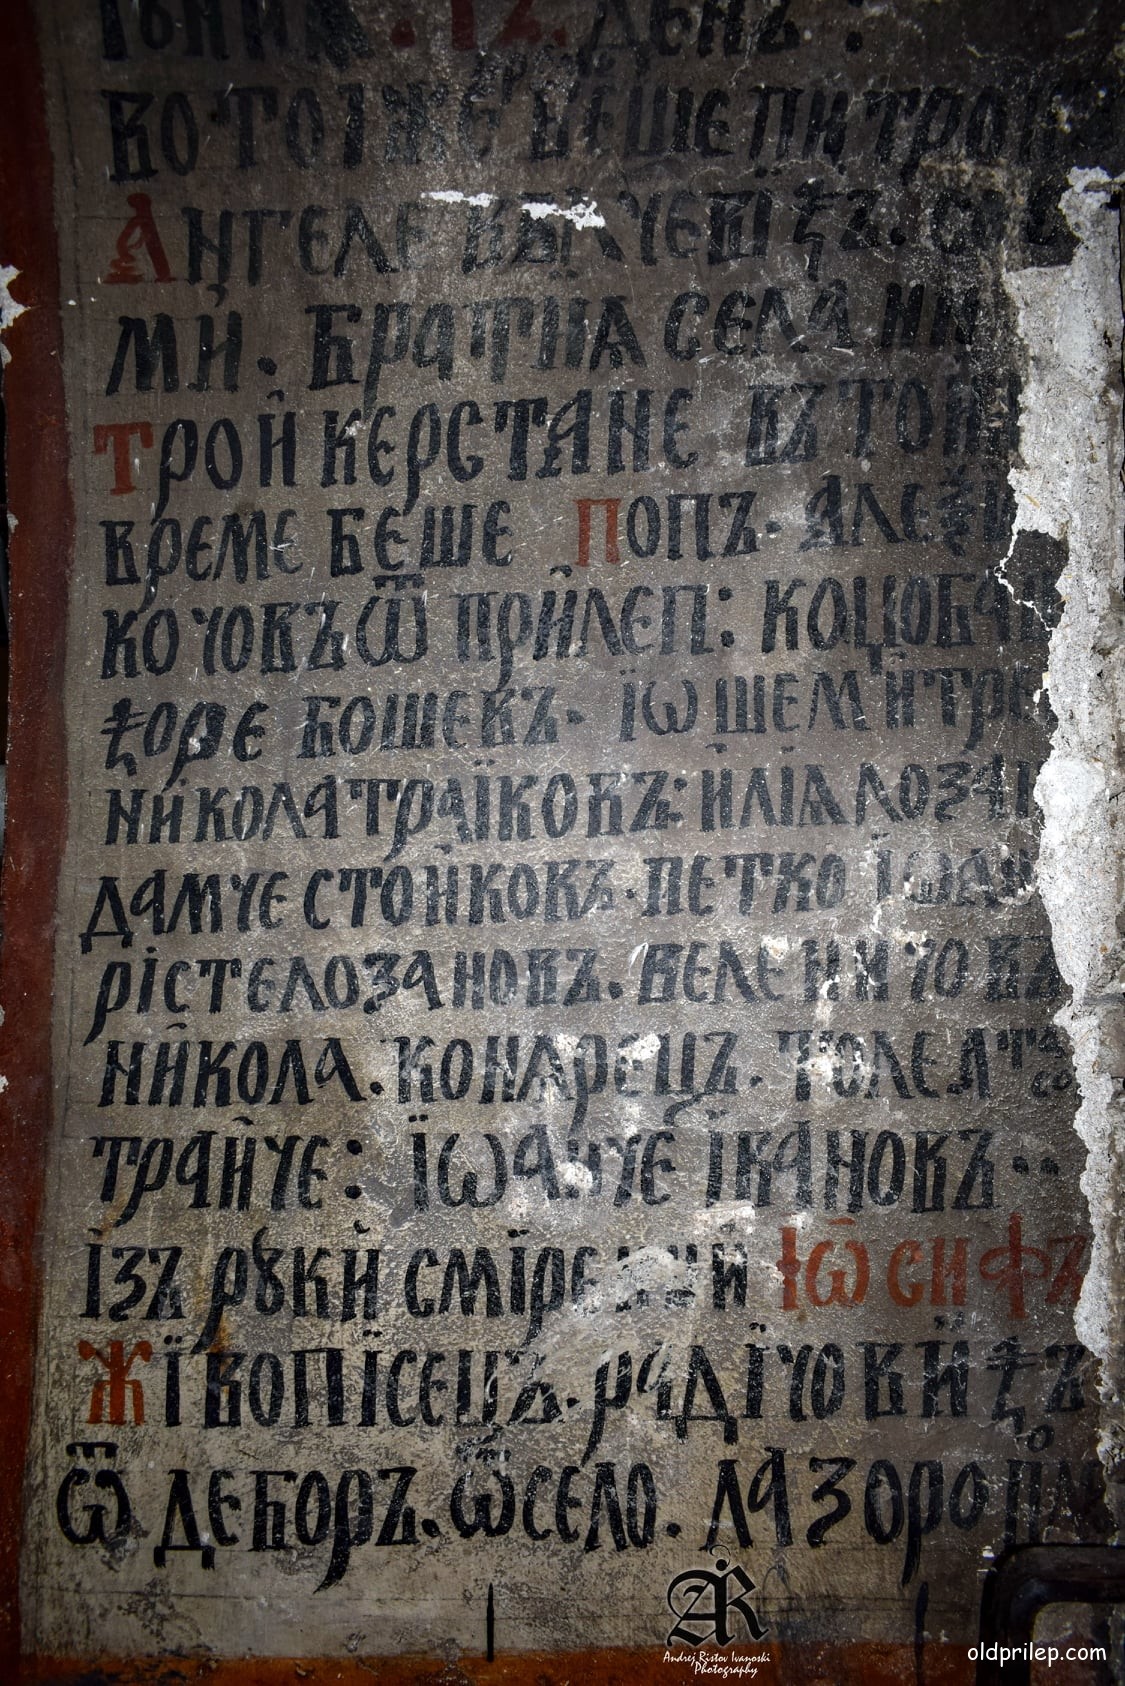 . 12. денъ :
во тоіже вре беше пи трои
Ангеле вълчевіќъ.
ми. братиѧ села ни
трой керстане въ той
време беше попъ. алеѯ
кочовъ ѿ прйлеп: коцо ба
ќоре бошевъ. їѡ шем'итре
нйкола траїковъ: илїѧ лоза
дамче стойковъ. петко їѡан
рістелозановъ. веленичовъ
нйкола. конарецъ. толе
трайче: їѡанче їкановъ..
ізъ рꙋки смїре їѡсифъ
жївопїсецъ. радїчовйќъ
ѿ деборъ. ѿ село. лазоропо
Andrej Ristov Ivanoski
Photography
oldprilep.com